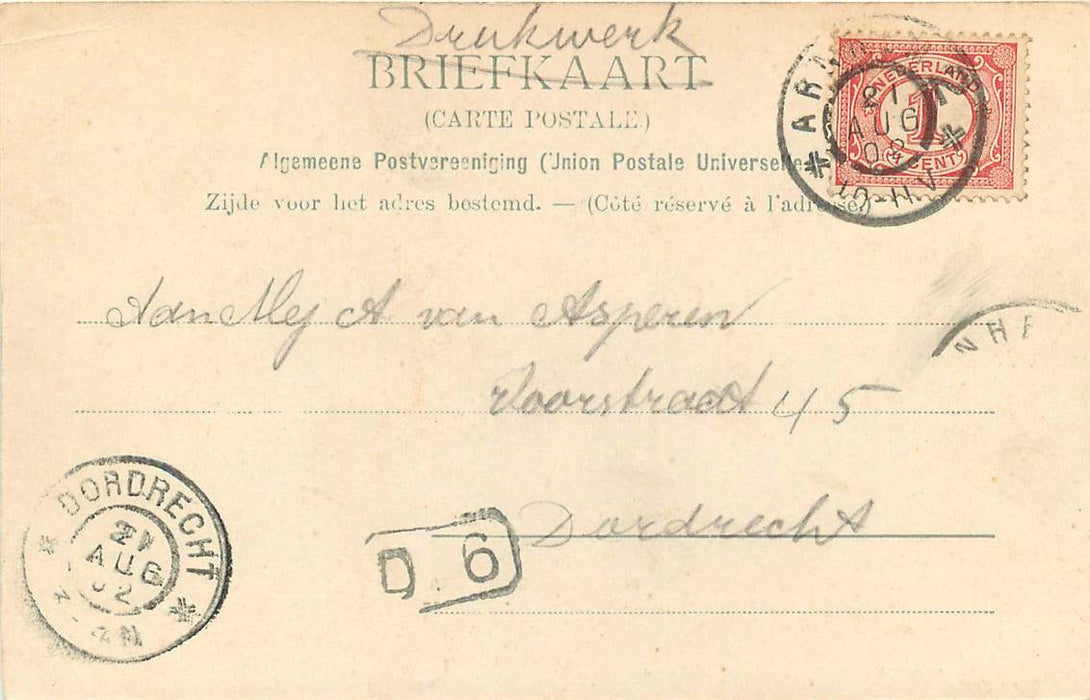 Drukwerk
BRIEFKAART
(CARTE POSTALE.)
Algemeene Postvereeniging (Union Postale Universelle
Zijde voor het adres bestemd. — (Côté réservé à l'adresse.)
NEDERLAND
1
CENT
21
AUG
02
10-11V
Aan Mej A van Asperen
NHE
Voorstraat 45
Dordrecht
D 6
DORDRECHT
21
AUG
02